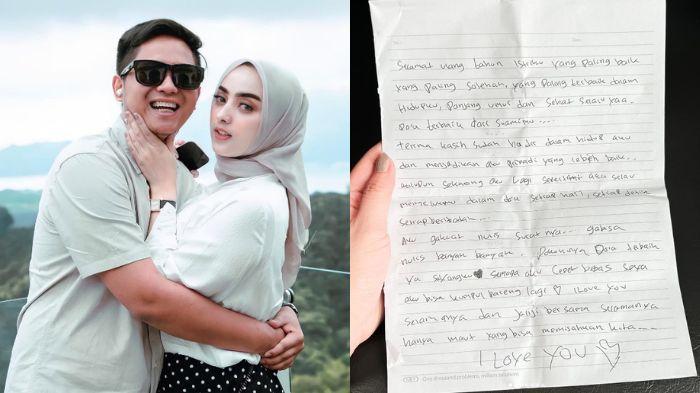 Selamat ulang tahun Istriku yang paling baik
yang paling solehah, yang paling terbaik dalam
Hidupku, panjang umur dan sehat selalu yaa.
Doa terbaik dari suamimu...
terima kasih sudah hadir dalam hidup aku
dan menjadikan aku pribadi yang lebih baik..
walupun sekarang aku lagi
dalam doa setiap hari, setiap
Aku gakuat nulis surat nya... gabisa
nulis banyak banyak. Pokoknya Doa terbaik
ya sayangku semoga aku cepet bebas
aku bisa kumpul bareng lagi I love you
selamanya dan janji bersama selamanya
hanya maut yang bisa memisahkan kita...
I Love you